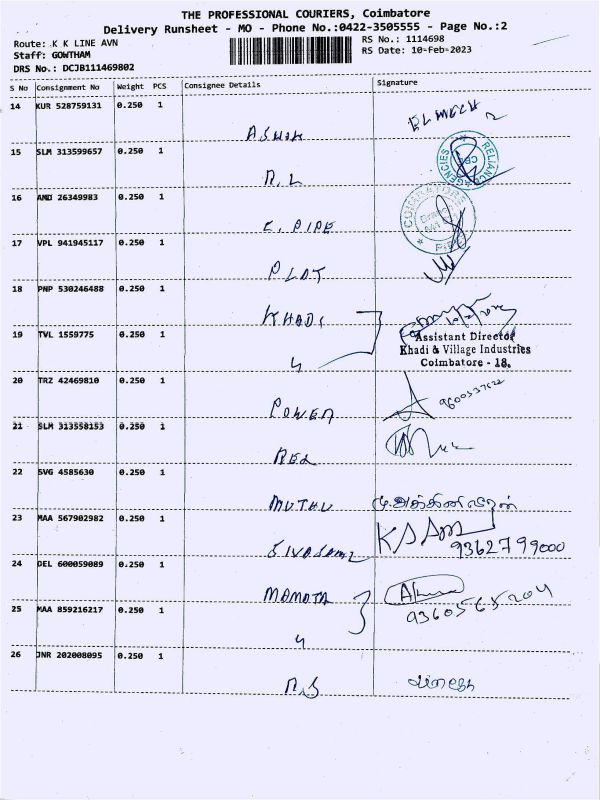 THE PROFESSIONAL COURIERS, Coimbatore
Delivery Runsheet - MO - Phone No.:0422-3505555 - Page No.:2
Route: K K LINE AVN
RS No.: 1114698
Staff: GOWTHAM
RS Date: 10-Feb-2023
DRS No.: DCJB111469802
S No Consignment No Weight PCS Consignee Details Signature
14 KUR 528759131 0.250 1
ASHOK
15 SLM 313599657 0.250 1
R.L
RELIANCE AGENCIES
CBE
16 AMD 26349983 0.250 1
C. PIPE
COIMBATORE
17 VPL 941945117 0.250 1
PLAT
18 PNP 530246488 0.250 1
KHADI
19 TVL 1559775 0.250 1
Assistant Director
Khadi & Village Industries
Coimbatore - 18.
20 TRZ 42469810 0.250 1
POWER
21 SLM 313558153 0.250 1
REL
22 SVG 4585630 0.250 1
MUTHU
23 MAA 567902982 0.250 1
SIVASAMI
9362799000
24 DEL 600059089 0.250 1
MAMATA
9360565204
25 MAA 859216217 0.250 1
26 JNR 202008095 0.250 1
R.S